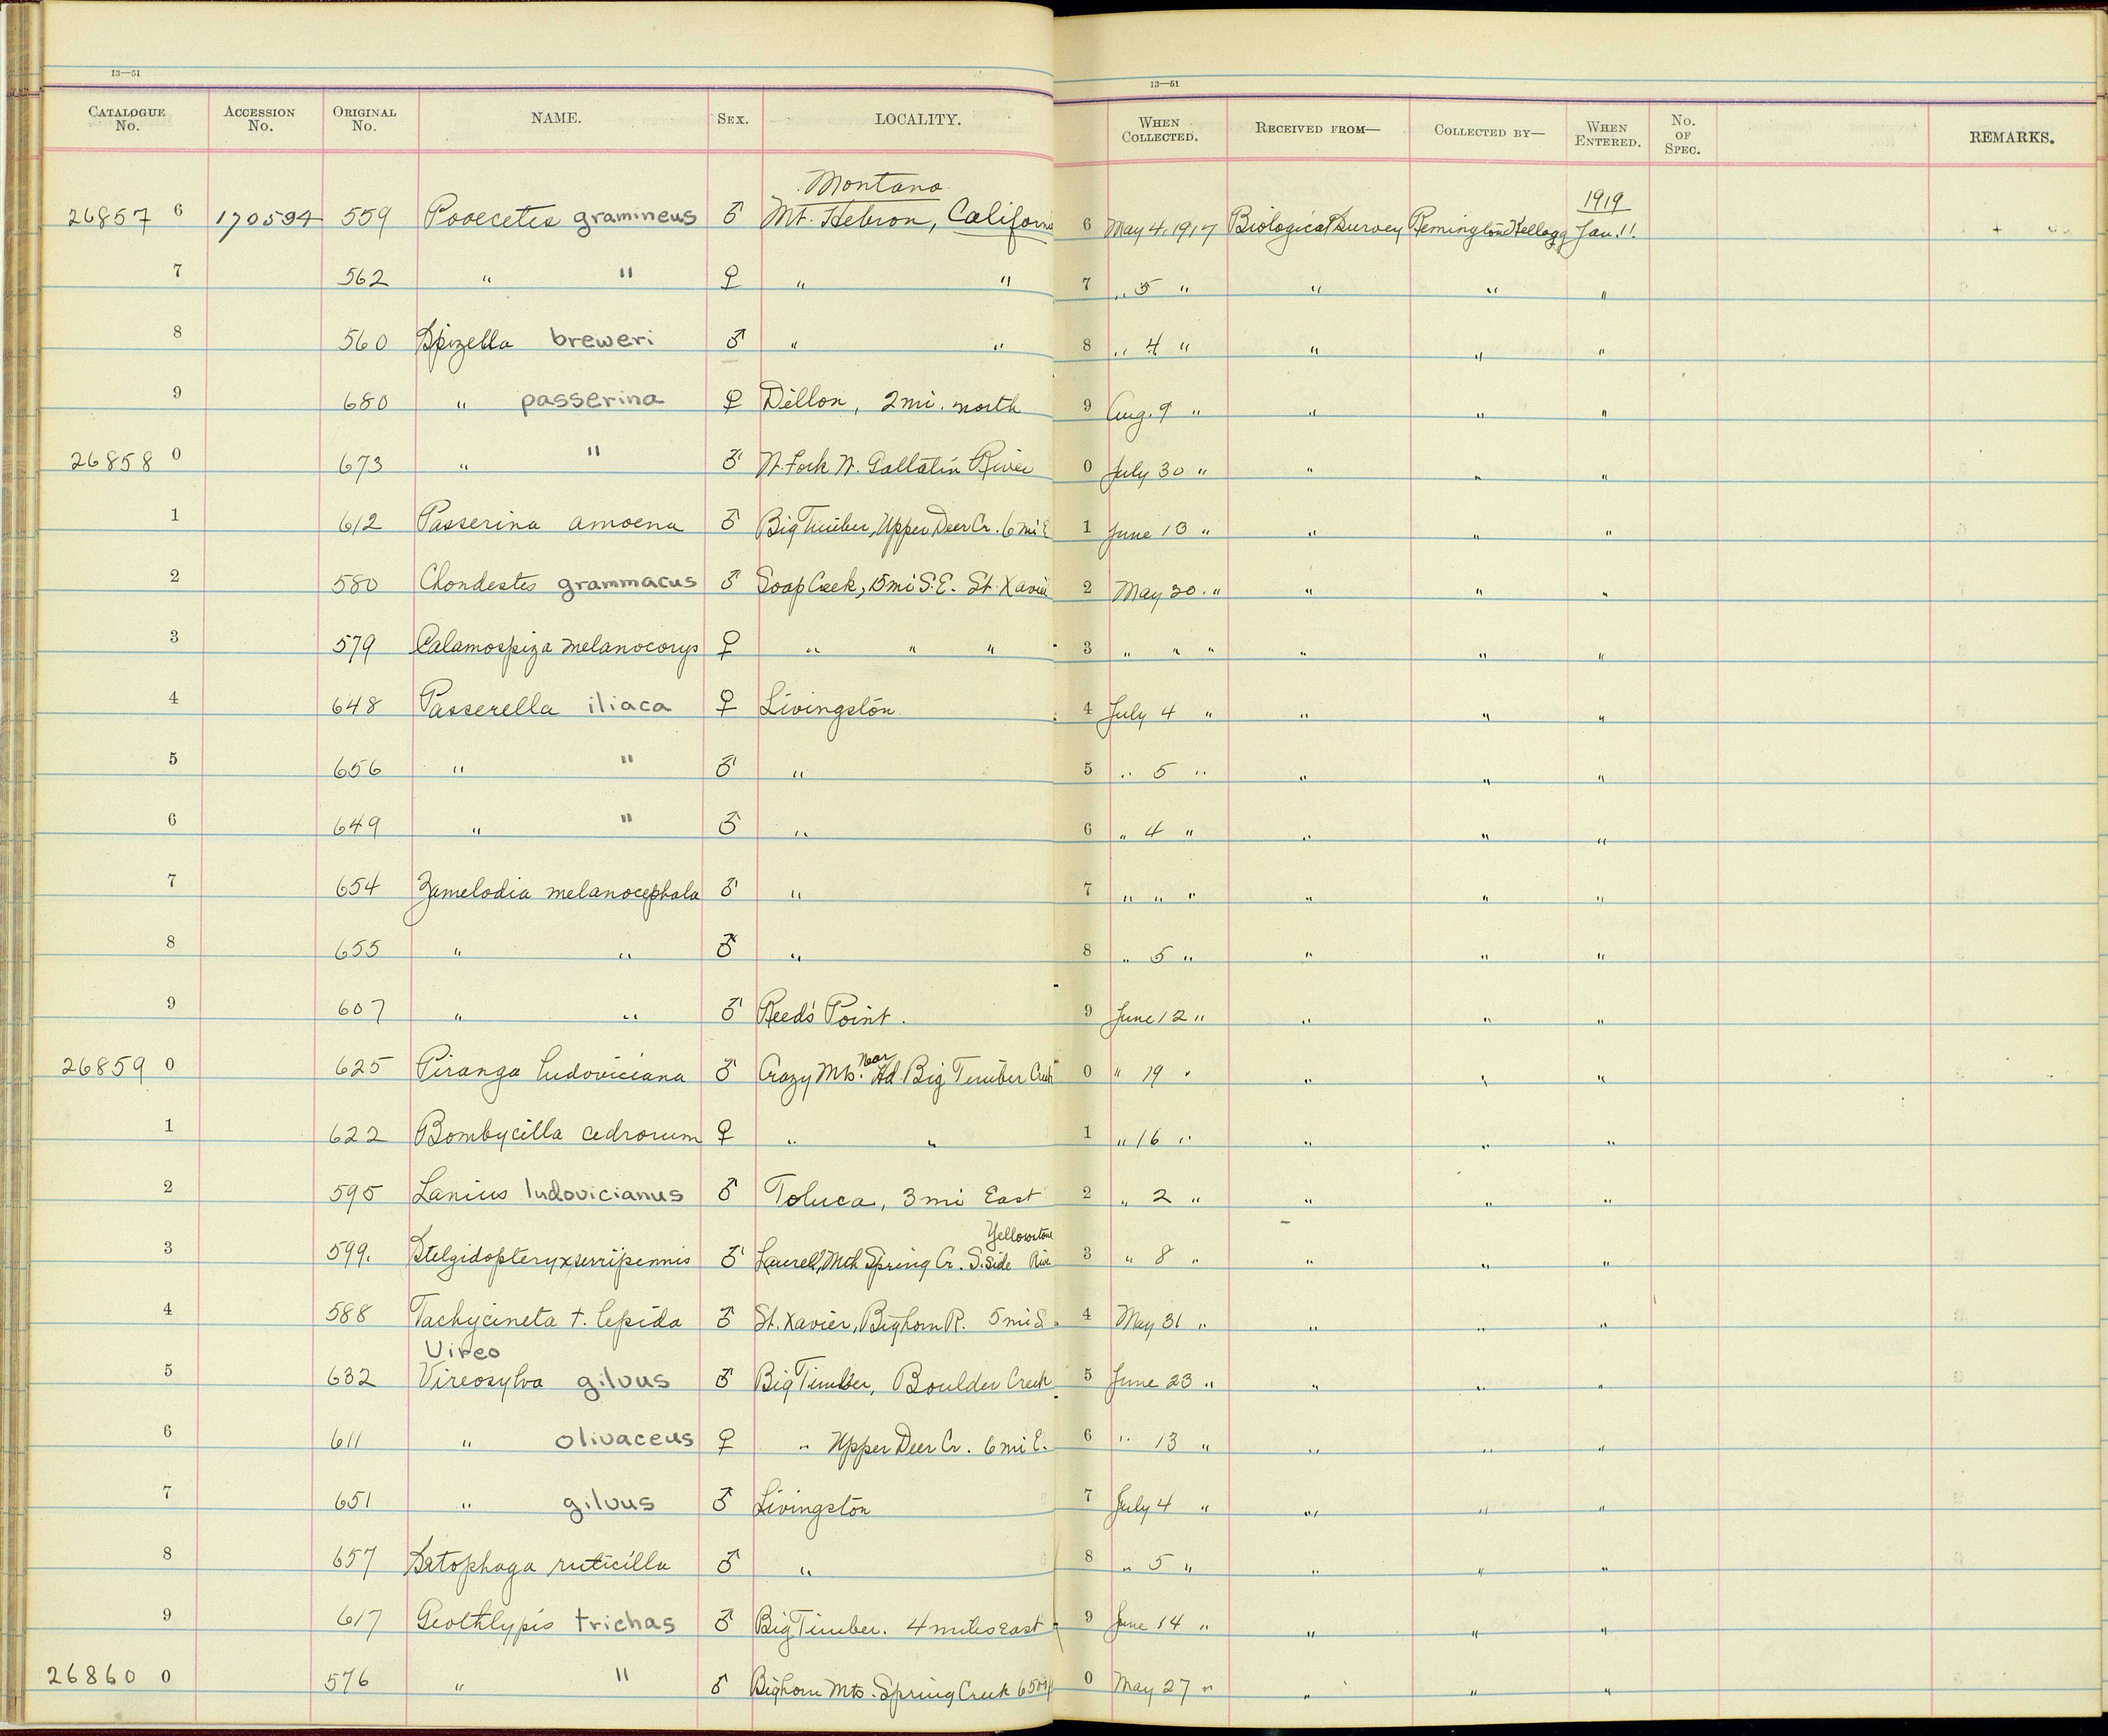 13—51
13—51
CATALOGUE No. ACCESSION No. ORIGINAL No. NAME. SEX. LOCALITY. WHEN COLLECTED. RECEIVED FROM— COLLECTED BY— WHEN ENTERED. No. OF SPEC. REMARKS.
Montana 1919
26857 6 170594 559 Pooecetes gramineus ♂ Mt. Hebron, California 6 May 4, 1917 Biological Survey Remington Kellogg Jan. 11. +
7 562 " " ♀ " " 7 " 5 " " " "
8 560 Spizella breweri ♂ " " 8 " 4 " " " "
9 680 " passerina ♀ Dillon, 2 mi. north 9 Aug. 9 " " " "
26858 0 673 " " ♂ W. Fork W. Gallatin River 0 July 30 " " " "
1 612 Passerina amoena ♂ Big Timber, Upper Deer Cr. 6 mi E 1 June 13 " " " "
2 580 Chondestes grammacus ♂ Soap Creek, 15 mi S.E. St. Xavier 2 May 30 . " " " "
3 579 Calamospiza melanocorys ♀ " " " 3 " " " " " "
4 648 Passerella iliaca ♀ Livingston 4 July 4 " " " "
5 656 " " ♂ " 5 " 5 " " " "
6 649 " " ♂ " 6 " 4 " " " "
7 654 Zamelodia melanocephala ♂ " 7 " " " " " "
8 655 " " ♂ " 8 " 5 " " " "
9 607 " " ♂ Reed's Point. 9 June 12 " " " "
26859 0 625 Piranga ludoviciana ♂ Crazy Mts. Near Hd. Big Timber Creek 0 " 19 " " " "
1 622 Bombycilla cedrorum ♀ " " 1 " 16 " " " "
2 595 Lanius ludovicianus ♂ Toluca, 3 mi East 2 " 2 " " " "
Yellowstone
3 599. Stelgidopteryx serripennis ♂ Laurel, Mth Spring Cr. S. side Riv 3 " 8 " " " "
4 588 Tachycineta t. lepida ♂ St. Xavier, Bighorn R. 5 mi S. 4 May 31 " " " "
Vireo
5 632 Vireosylva gilvus ♂ Big Timber, Boulder Creek 5 June 23 " " " "
6 611 " olivaceus ♀ " Upper Deer Cr. 6 mi E. 6 " 13 " " " "
7 651 " gilvus ♂ Livingston 7 July 4 " " " "
8 657 Setophaga ruticilla ♂ " 8 " 5 " " " "
9 617 Geothlypis trichas ♂ Big Timber. 4 miles east 9 June 14 " " " "
26860 0 576 " " ♂ Bighorn Mts. Spring Creek 0 May 27 " " " "